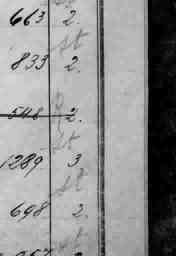 st
663 2.
st
833 2.
548 2.
st
1289 3
st
698 2.
st